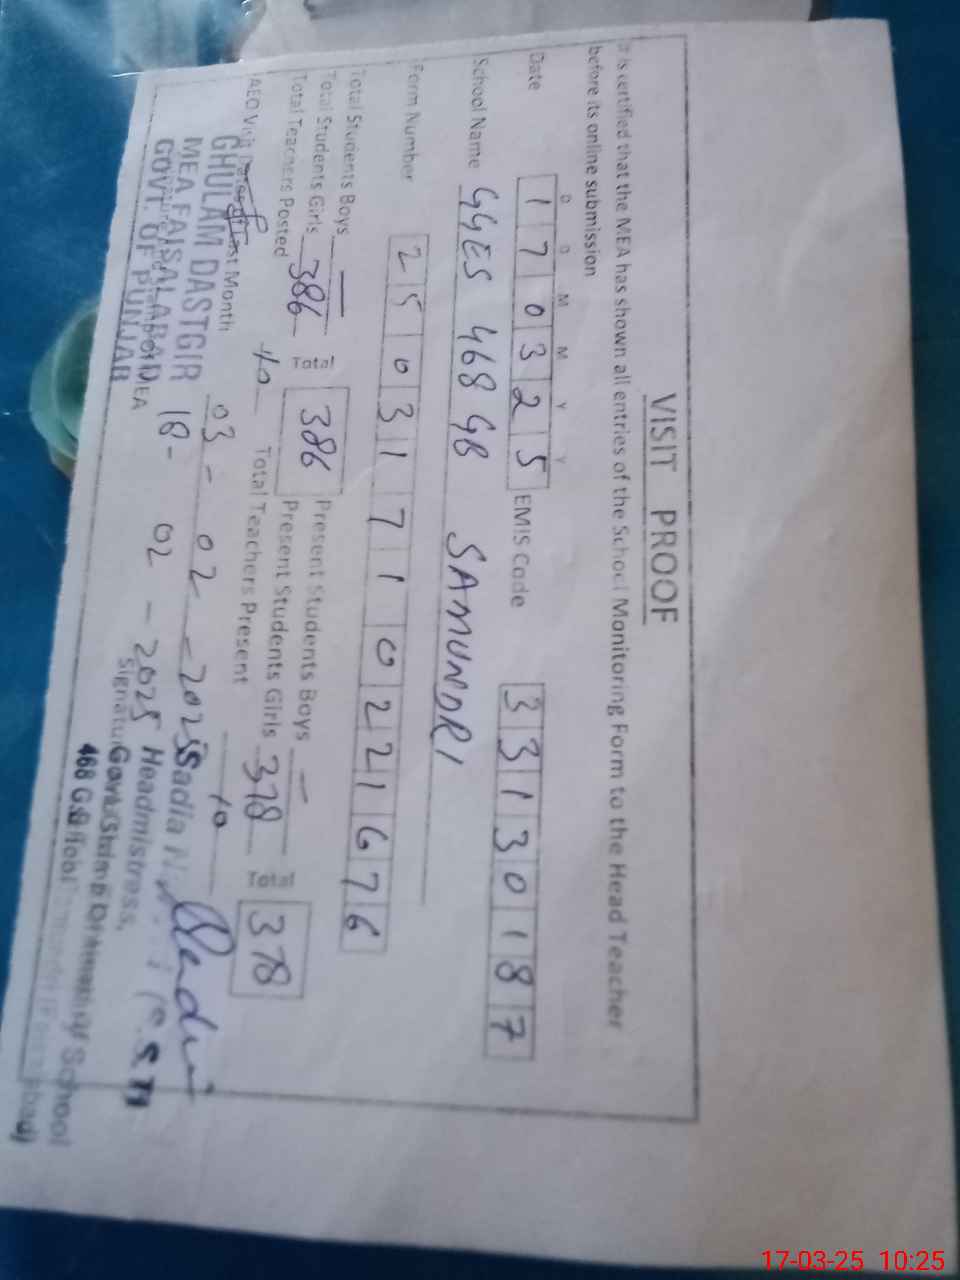 VISIT PROOF
It is certified that the MEA has shown all entries of the School Monitoring Form to the Head Teacher
before its online submission
D D M M Y Y
Date 1 7 0 3 2 5 EMIS Code 3 3 1 3 0 1 8 7
School Name GGES 468 GB SAMUNDRI
Form Number 2 5 0 3 1 7 1 0 2 2 1 6 7 6
Total Students Boys — Present Students Boys —
Total Students Girls 386 Total 386 Present Students Girls 378 Total 378
Total Teachers Posted 10 Total Teachers Present 10
AEO Visit Dates of Last Month 03 - 02 - 2025
18 - 02 - 2025
GHULAM DASTGIR
MEA FAISALABAD
GOVT. OF PUNJAB
MEA
Sadia
Headmistress,
School
468 G.B
17-03-25 10:25